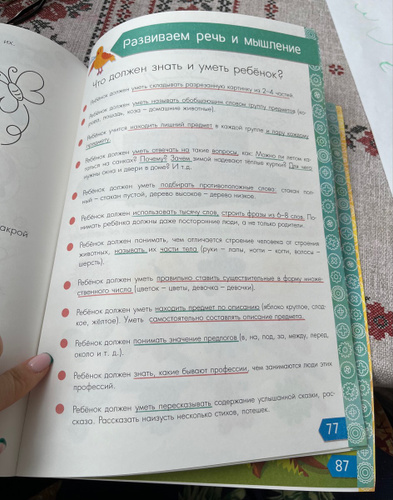 их.
акрой
Развиваем речь и мышление
Что должен знать и уметь ребёнок?
Ребёнок должен уметь складывать разрезанную картинку из 2–4 частей.
Ребёнок должен уметь называть обобщающим словом группу предметов (ко-
рова, лошадь, коза – домашние животные).
Ребёнок учится находить лишний предмет в каждой группе и пару каждому
предмету.
Ребёнок должен уметь отвечать на такие вопросы, как: Можно ли летом ка-
таться на санках? Почему? Зачем зимой надевают тёплые куртки? Для чего
нужны окна и двери в доме? И т.д.
Ребёнок должен уметь подбирать противоположные слова: стакан пол-
ный – стакан пустой, дерево высокое – дерево низкое.
Ребёнок должен использовать тысячу слов, строить фразы из 6–8 слов. По-
нимать ребёнка должны даже посторонние люди, а не только родители.
Ребёнок должен понимать, чем отличается строение человека от строения
животных, называть их части тела (руки – лапы, ногти – когти, волосы –
шерсть).
Ребёнок должен уметь правильно ставить существительные в форму множе-
ственного числа (цветок – цветы, девочка – девочки).
Ребёнок должен уметь находить предмет по описанию (яблоко круглое, слад-
кое, жёлтое). Уметь самостоятельно составлять описание предмета.
Ребёнок должен понимать значение предлогов (в, на, под, за, между, перед,
около и т. д.).
Ребёнок должен знать, какие бывают профессии, чем занимаются люди этих
профессий.
Ребёнок должен уметь пересказывать содержание услышанной сказки, рас-
сказа. Рассказать наизусть несколько стихов, потешек.
77
87